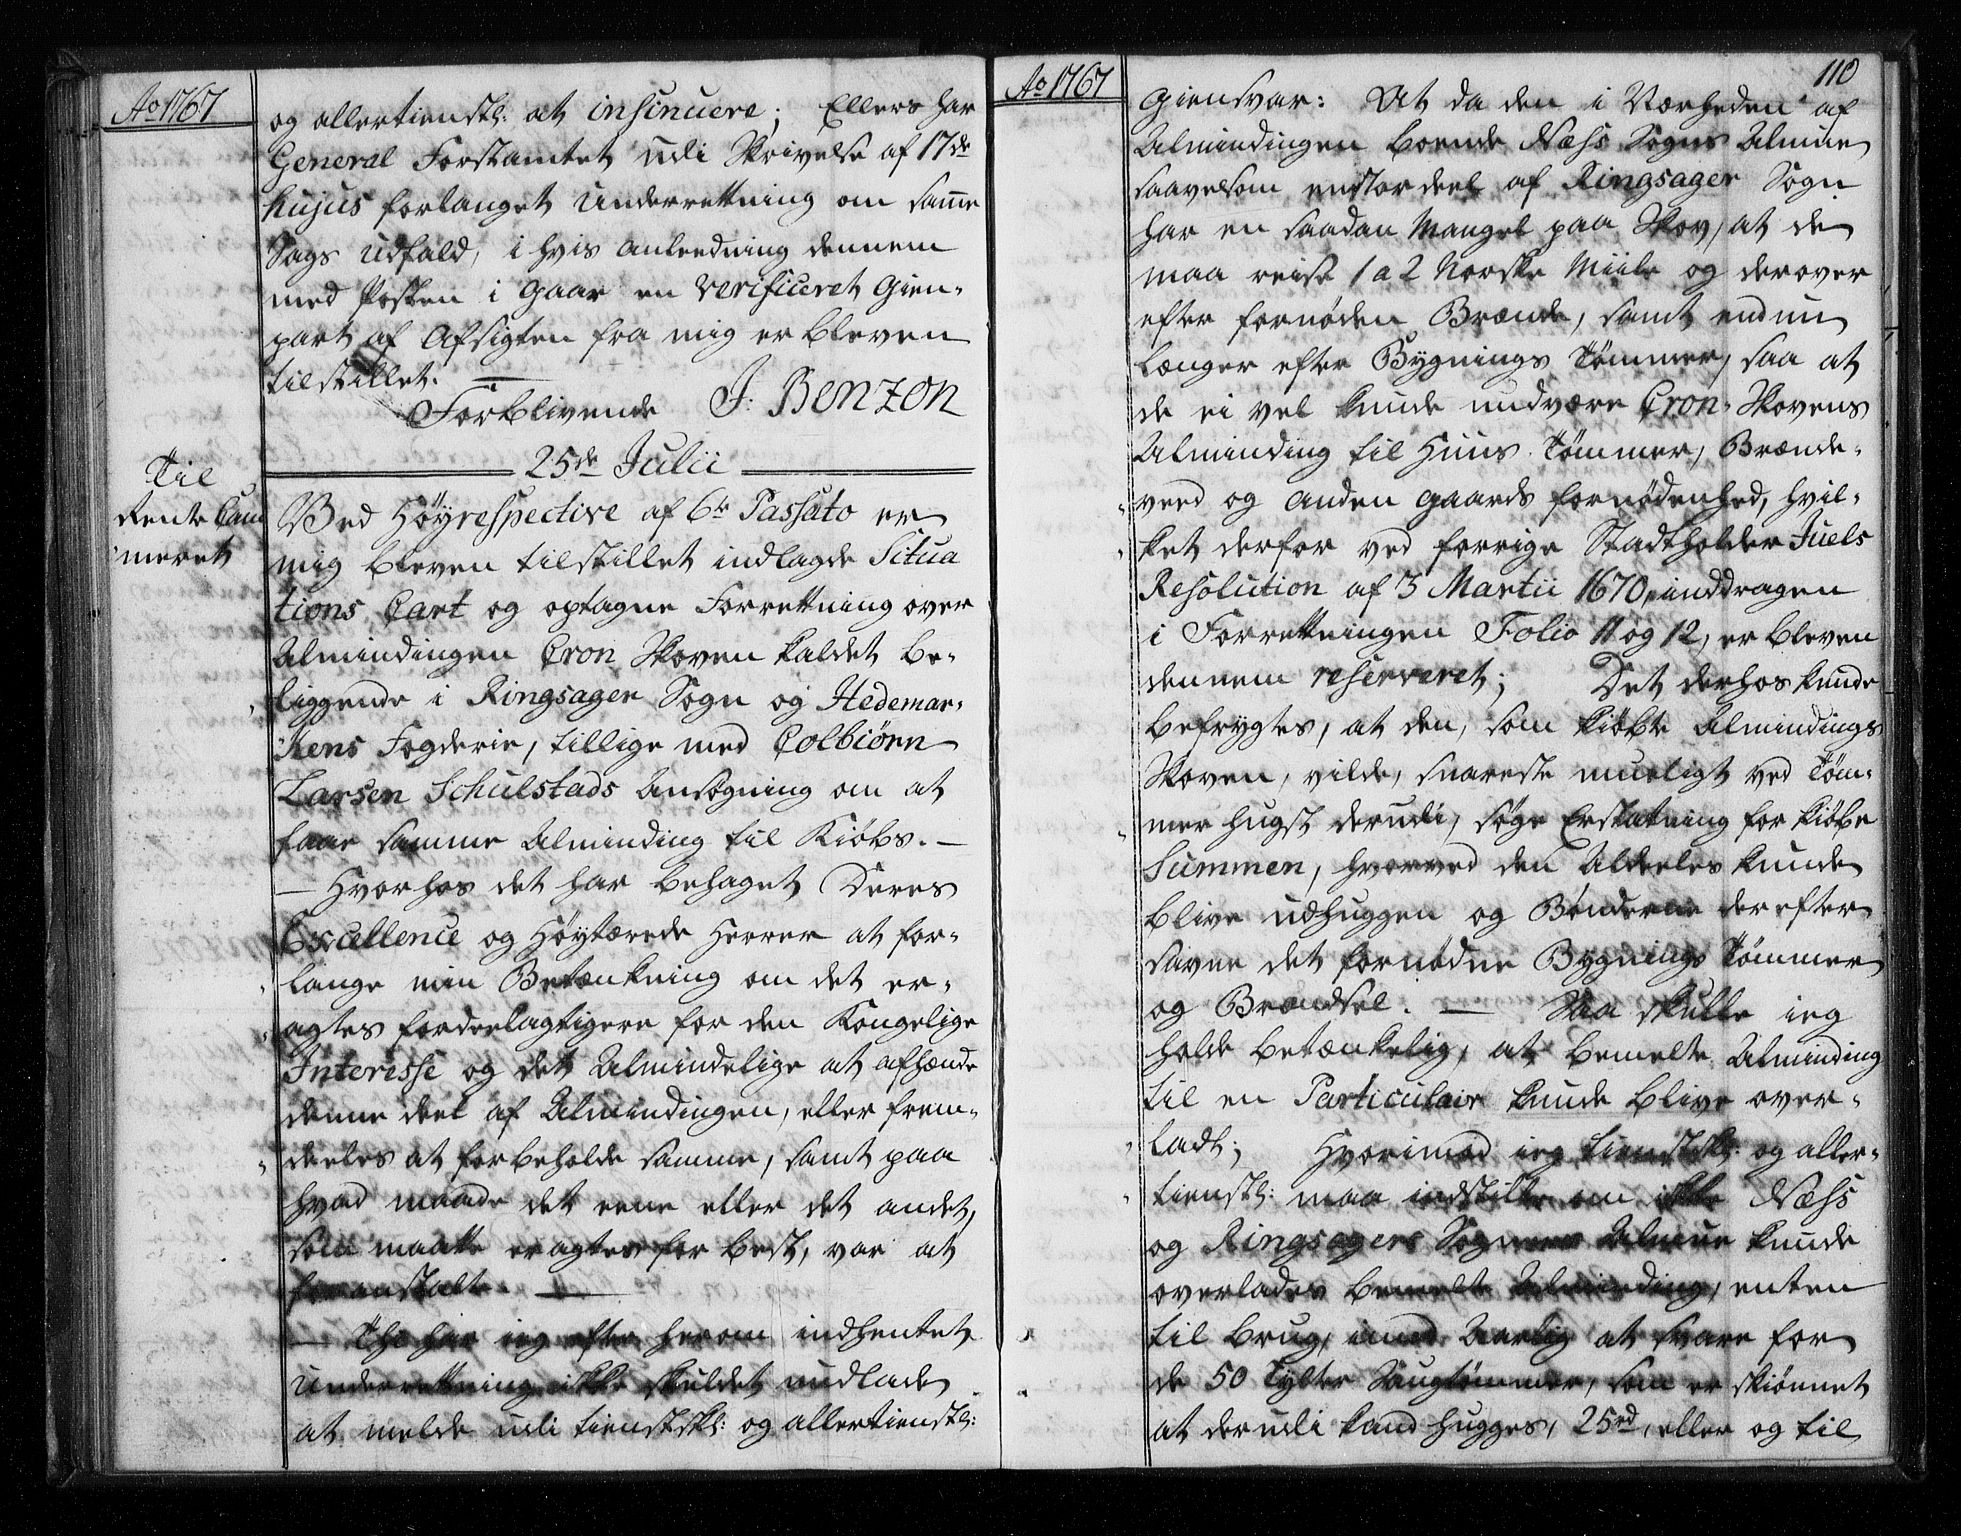 Ao 1767
og allertienstl: at insinuere; Ellers har
General Forstamtet udi Skrivelse af 17de
hujus forlanget Underrettning om samme
Sags Udfald, i hvis anleedning dennem
med Posten i Gaar en verificeret Gien-
part af Afsigten fra mig er bleven
tilstillet.
Forblivende J. Benzon
25de Julii
Til
Rente Cam
meret
Ved Høyrespective af 6te Passato er
mig bleven tilstillet indlagde Situa
tions Cart og optagne Forrettning over
Almindingen Cron Skoven kaldet be-
liggende i Ringsager Sogn og Hedemar-
kens Fogderie, tillige med Colbiørn
Larsen Schulstads Ansøgning om at
faae samme Alminding til Kiøbs. —
— Hvorhos det har behaget Deres
Excellence og Høytærede Herrer at for-
lange min Betænkning om det er-
agtes fordeelagtigere for den Kongelige
Interesse og det Almindelige at afhænde
denne deel af Almindingen, eller frem-
deeles at forbeholde samme, samt paa
hvad maade det eene eller det andet,
som maatte eragtes for best, var at
foranstalte. —
— Thi har ieg efter herom indhentet
Underrettning ikke skuldet undlade
at melde udi tienstskl: og allertienstl:
Ao 1767
110
Giensvar: At da den i Nærheden af
Almindingen boende Næss Sogns Almue
saavelsom enstor deel af Ringsager Sogn
har en saadan Mangel paa Skov, at de
maa reise 1 a 2 Norske Miile og derover
efter fornøden Brænde, samt endnu
længer efter Bygnings Tømmer, saa at
de ei vel kunde undvære Cron-Skovens
Alminding til Huus-Tømmer, Brænde-
veed og anden gaards fornødenhed, hvil-
ket derfor ved forrige Stadtholder Juels
Resolution af 3 Martii 1670, inddragen
i Forrettningen Folio 11 og 12, er bleven
dennem reserveret; Det derhos kunde
befrygtes, at den, som kiøbte Almindings
Skoven, vilde, snareste mueligt ved Tøm-
mer hugst derudi, søge Erstatning for kiøbe
Summen, hvorved den Aldeeles kunde
blive udhuggen og Bønderne derefter
savne det fornødne Bygnings Tømmer
og Brændsel. — Saa skulle ieg
holde betænkelig, at bemelte Alminding
til en Particulair kunde blive over-
ladt; Hvorimod ieg tienstskl: og aller-
tienstl: maa indstille om ikke Næss
og Ringsagers Sognes Almue kunde
overlades bemelte Alminding, enten
til brug, imod Aarlig at svare for
de 50 Tylter Saugtømmer, som er skiønnet
at derudi kand hugges, 25rd, eller og til